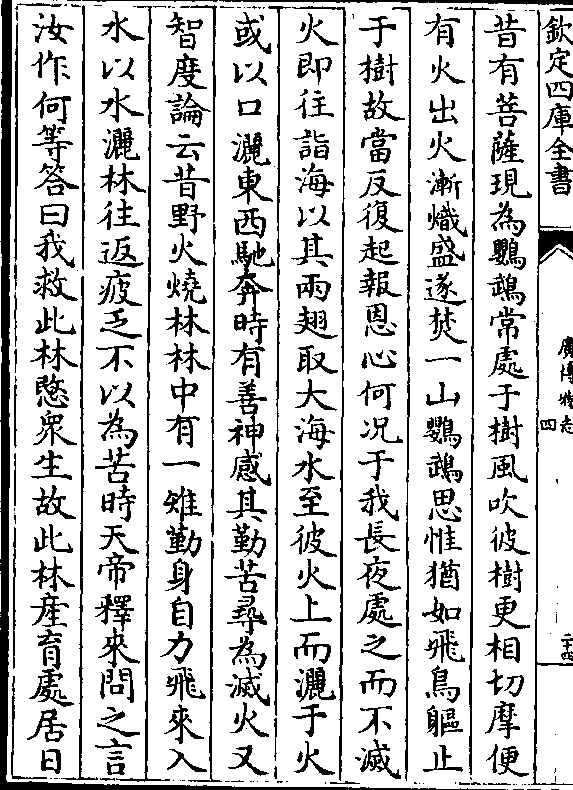 欽定四庫全書
廣博物志
四
二十四
昔有菩薩現為鸚鵡常處于樹風吹彼樹更相切摩便
有火出火漸熾盛遂焚一山鸚鵡思惟猶如飛鳥軀止
于樹故當反復起報恩心何况于我長夜處之而不滅
火即往詣海以其兩翅取大海水至彼火上而灑于火
或以口灑東西馳奔時有善神感其勤苦尋為滅火又
智度論云昔野火燒林林中有一雉勤身自力飛來入
水以水灑林往返疲乏不以為苦時天帝釋來問之言
汝作何等答曰我救此林愍衆生故此林產育處居日